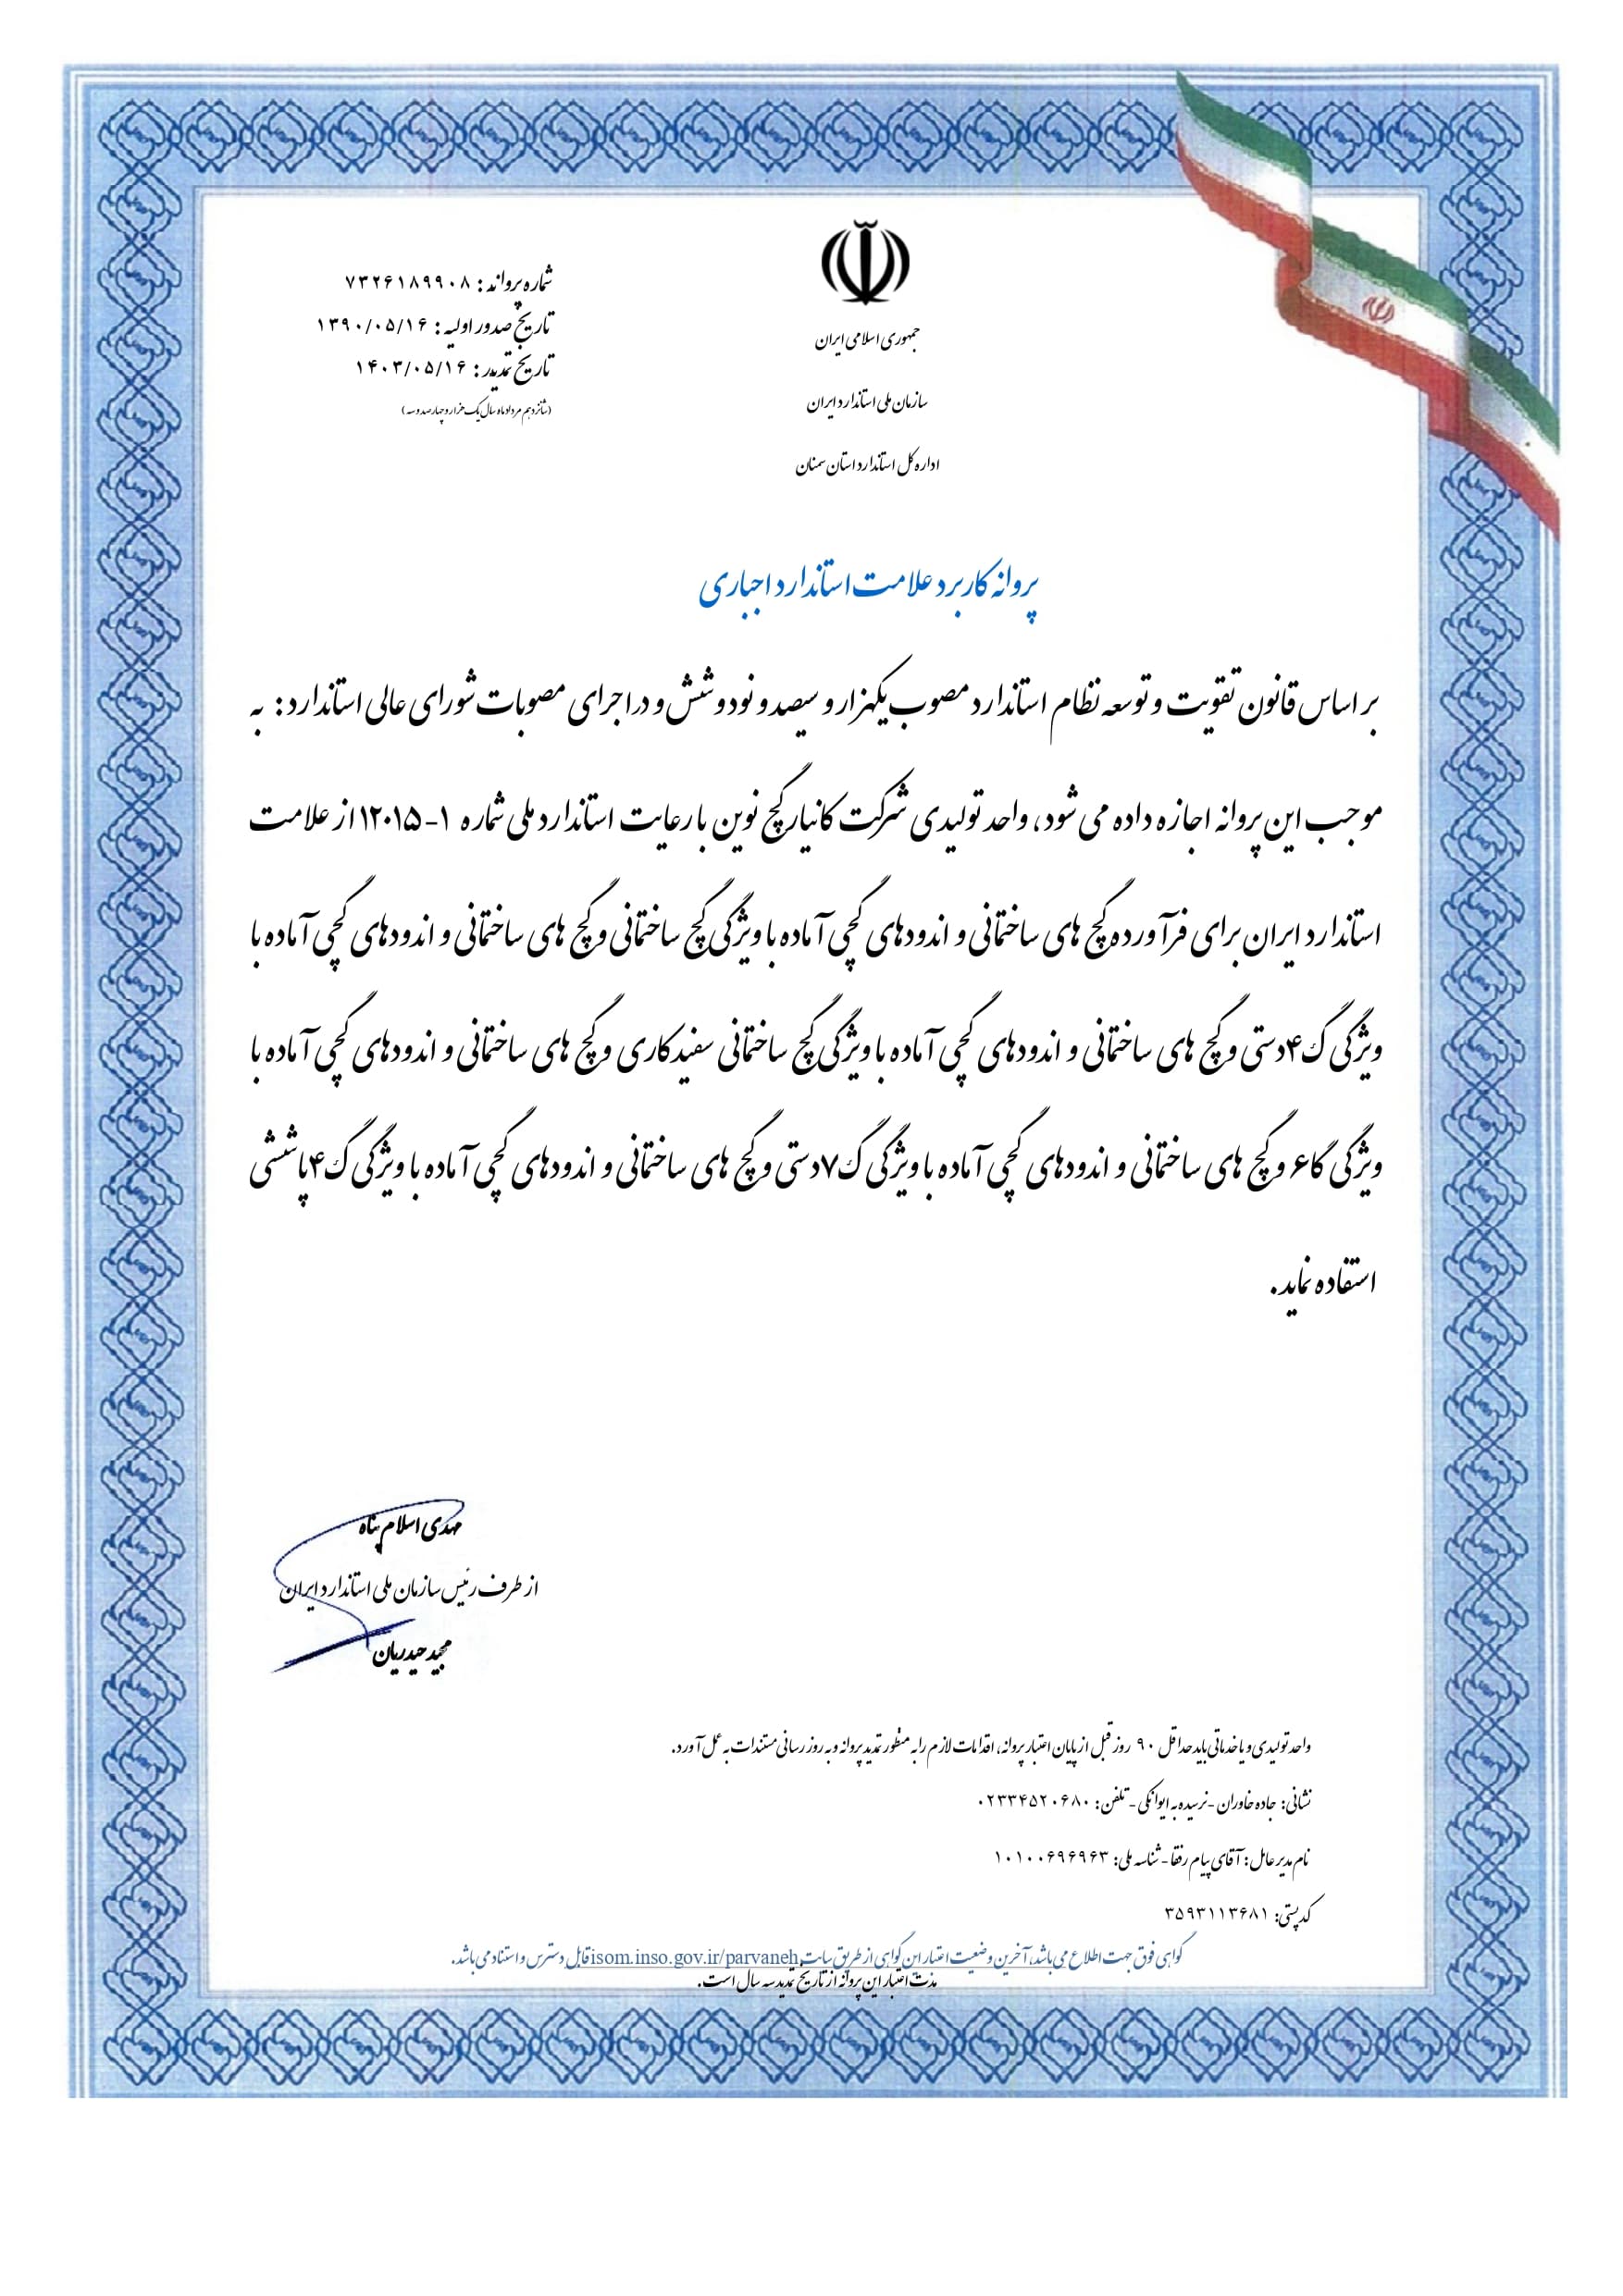 جمهوری اسلامی ایران
سازمان ملی استاندارد ایران
اداره کل استاندارد استان سمنان
شماره پروانه : ۷۳۲۶۱۸۹۹۰۸
تاریخ صدور اولیه : ۱۳۹۰/۰۵/۱۶
تاریخ تمدید : ۱۴۰۳/۰۵/۱۶
(شانزدهم مرداد ماه سال یک هزار و چهارصد و سه)
پروانه کاربرد علامت استاندارد اجباری
بر اساس قانون تقویت و توسعه نظام استاندارد مصوب یکهزار و سیصد و نود و شش و در اجرای مصوبات شورای عالی استاندارد : به
موجب این پروانه اجازه داده می شود، واحد تولیدی شرکت کانیار گچ نوین با رعایت استاندارد ملی شماره ۱-۱۲۰۱۵ از علامت
استاندارد ایران برای فرآورده گچ های ساختمانی و اندودهای گچی آماده با ویژگی گچ ساختمانی و گچ های ساختمانی و اندودهای گچی آماده با
ویژگی گ۴دستی و گچ های ساختمانی و اندودهای گچی آماده با ویژگی گچ ساختمانی سفیدکاری و گچ های ساختمانی و اندودهای گچی آماده با
ویژگی گا۶ و گچ های ساختمانی و اندودهای گچی آماده با ویژگی گ۷دستی و گچ های ساختمانی و اندودهای گچی آماده با ویژگی گ۴پاششی
استفاده نماید .
مهدی اسلام پناه
از طرف رئیس سازمان ملی استاندارد ایران
مجید حیدریان
واحد تولیدی و یا خدماتی باید حداقل ۹۰ روز قبل از پایان اعتبار پروانه، اقدامات لازم را به منظور تمدید پروانه و به روز رسانی مستندات به عمل آورد.
نشانی: جاده خاوران - نرسیده به ایوانکی - تلفن: ۰۲۳۳۴۵۲۰۶۸۰
نام مدیر عامل: آقای پیام رفقا - شناسه ملی: ۱۰۱۰۰۶۹۶۹۶۳
کد پستی: ۳۵۹۳۱۱۳۶۸۱
گواهی فوق جهت اطلاع می باشد، آخرین وضعیت اعتبار این گواهی از طریق سایت isom.inso.gov.ir/parvaneh قابل دسترس و استناد می باشد.
مدت اعتبار این پروانه از تاریخ تمدید سه سال است.